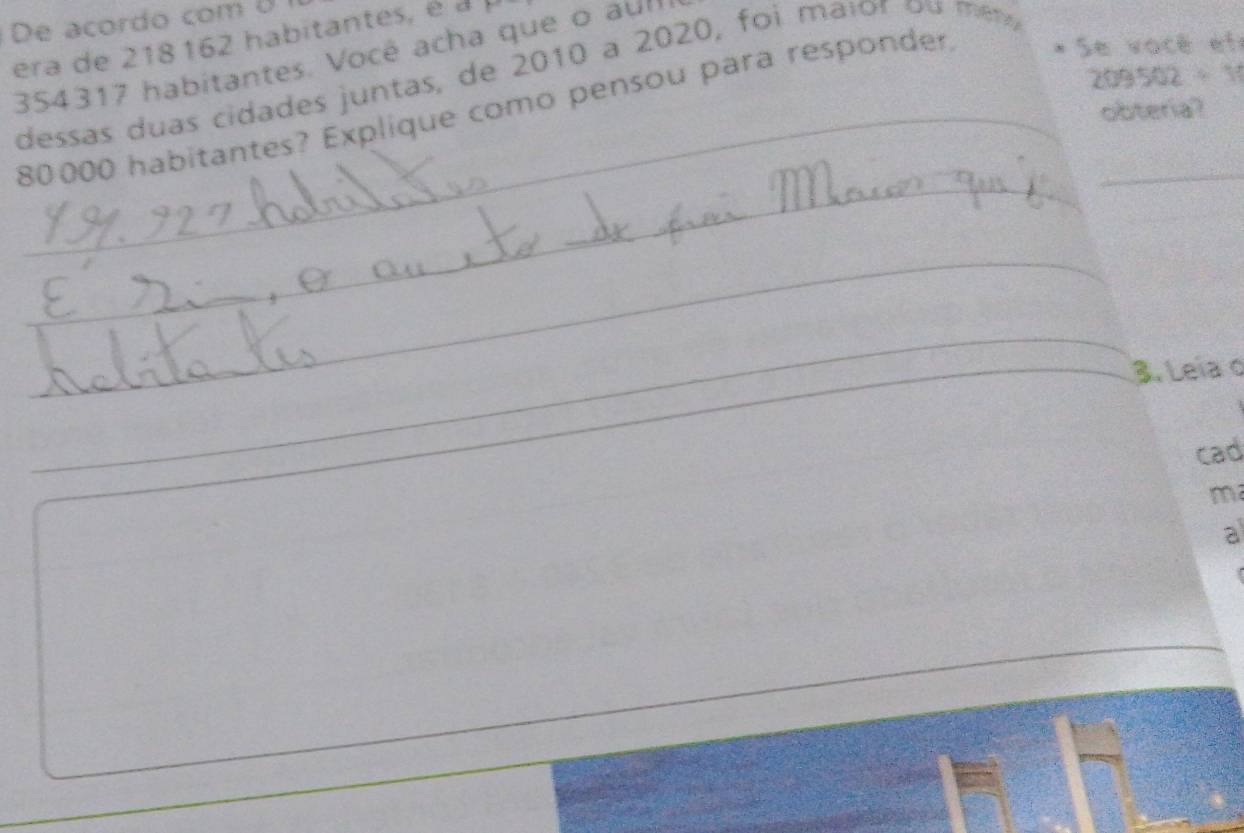 De acordo com o
era de 218 162 habitantes, e a
354 317 habitantes. Você acha que o
dessas duas cidades juntas, de 2010 a 2020, foi maior ou
80 000 habitantes? Explique como pensou para responder.
habitantes
E sim, o aumento de foi Maior que
habitantes
• Se você
209 502 ÷
obteria?
3. Leia o
cad